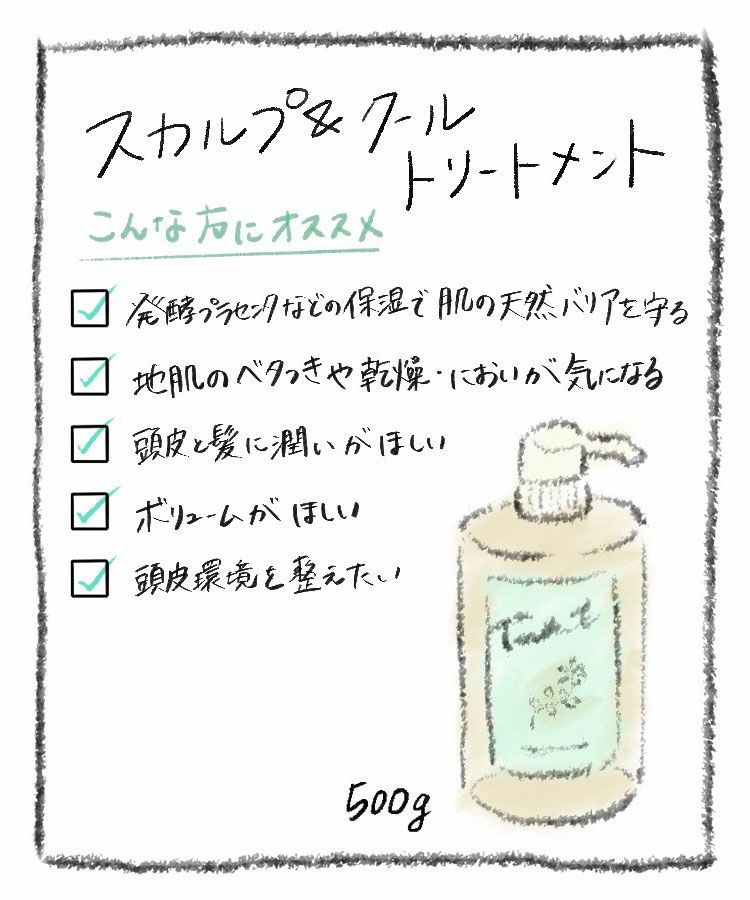 スカルプ&クール
トリートメント
こんな方にオススメ
発酵プラセンタなどの保湿で肌の天然バリアを守る
地肌のベタつきや乾燥・においが気になる
頭皮と髪に潤いがほしい
ボリュームがほしい
頭皮環境を整えたい
500g